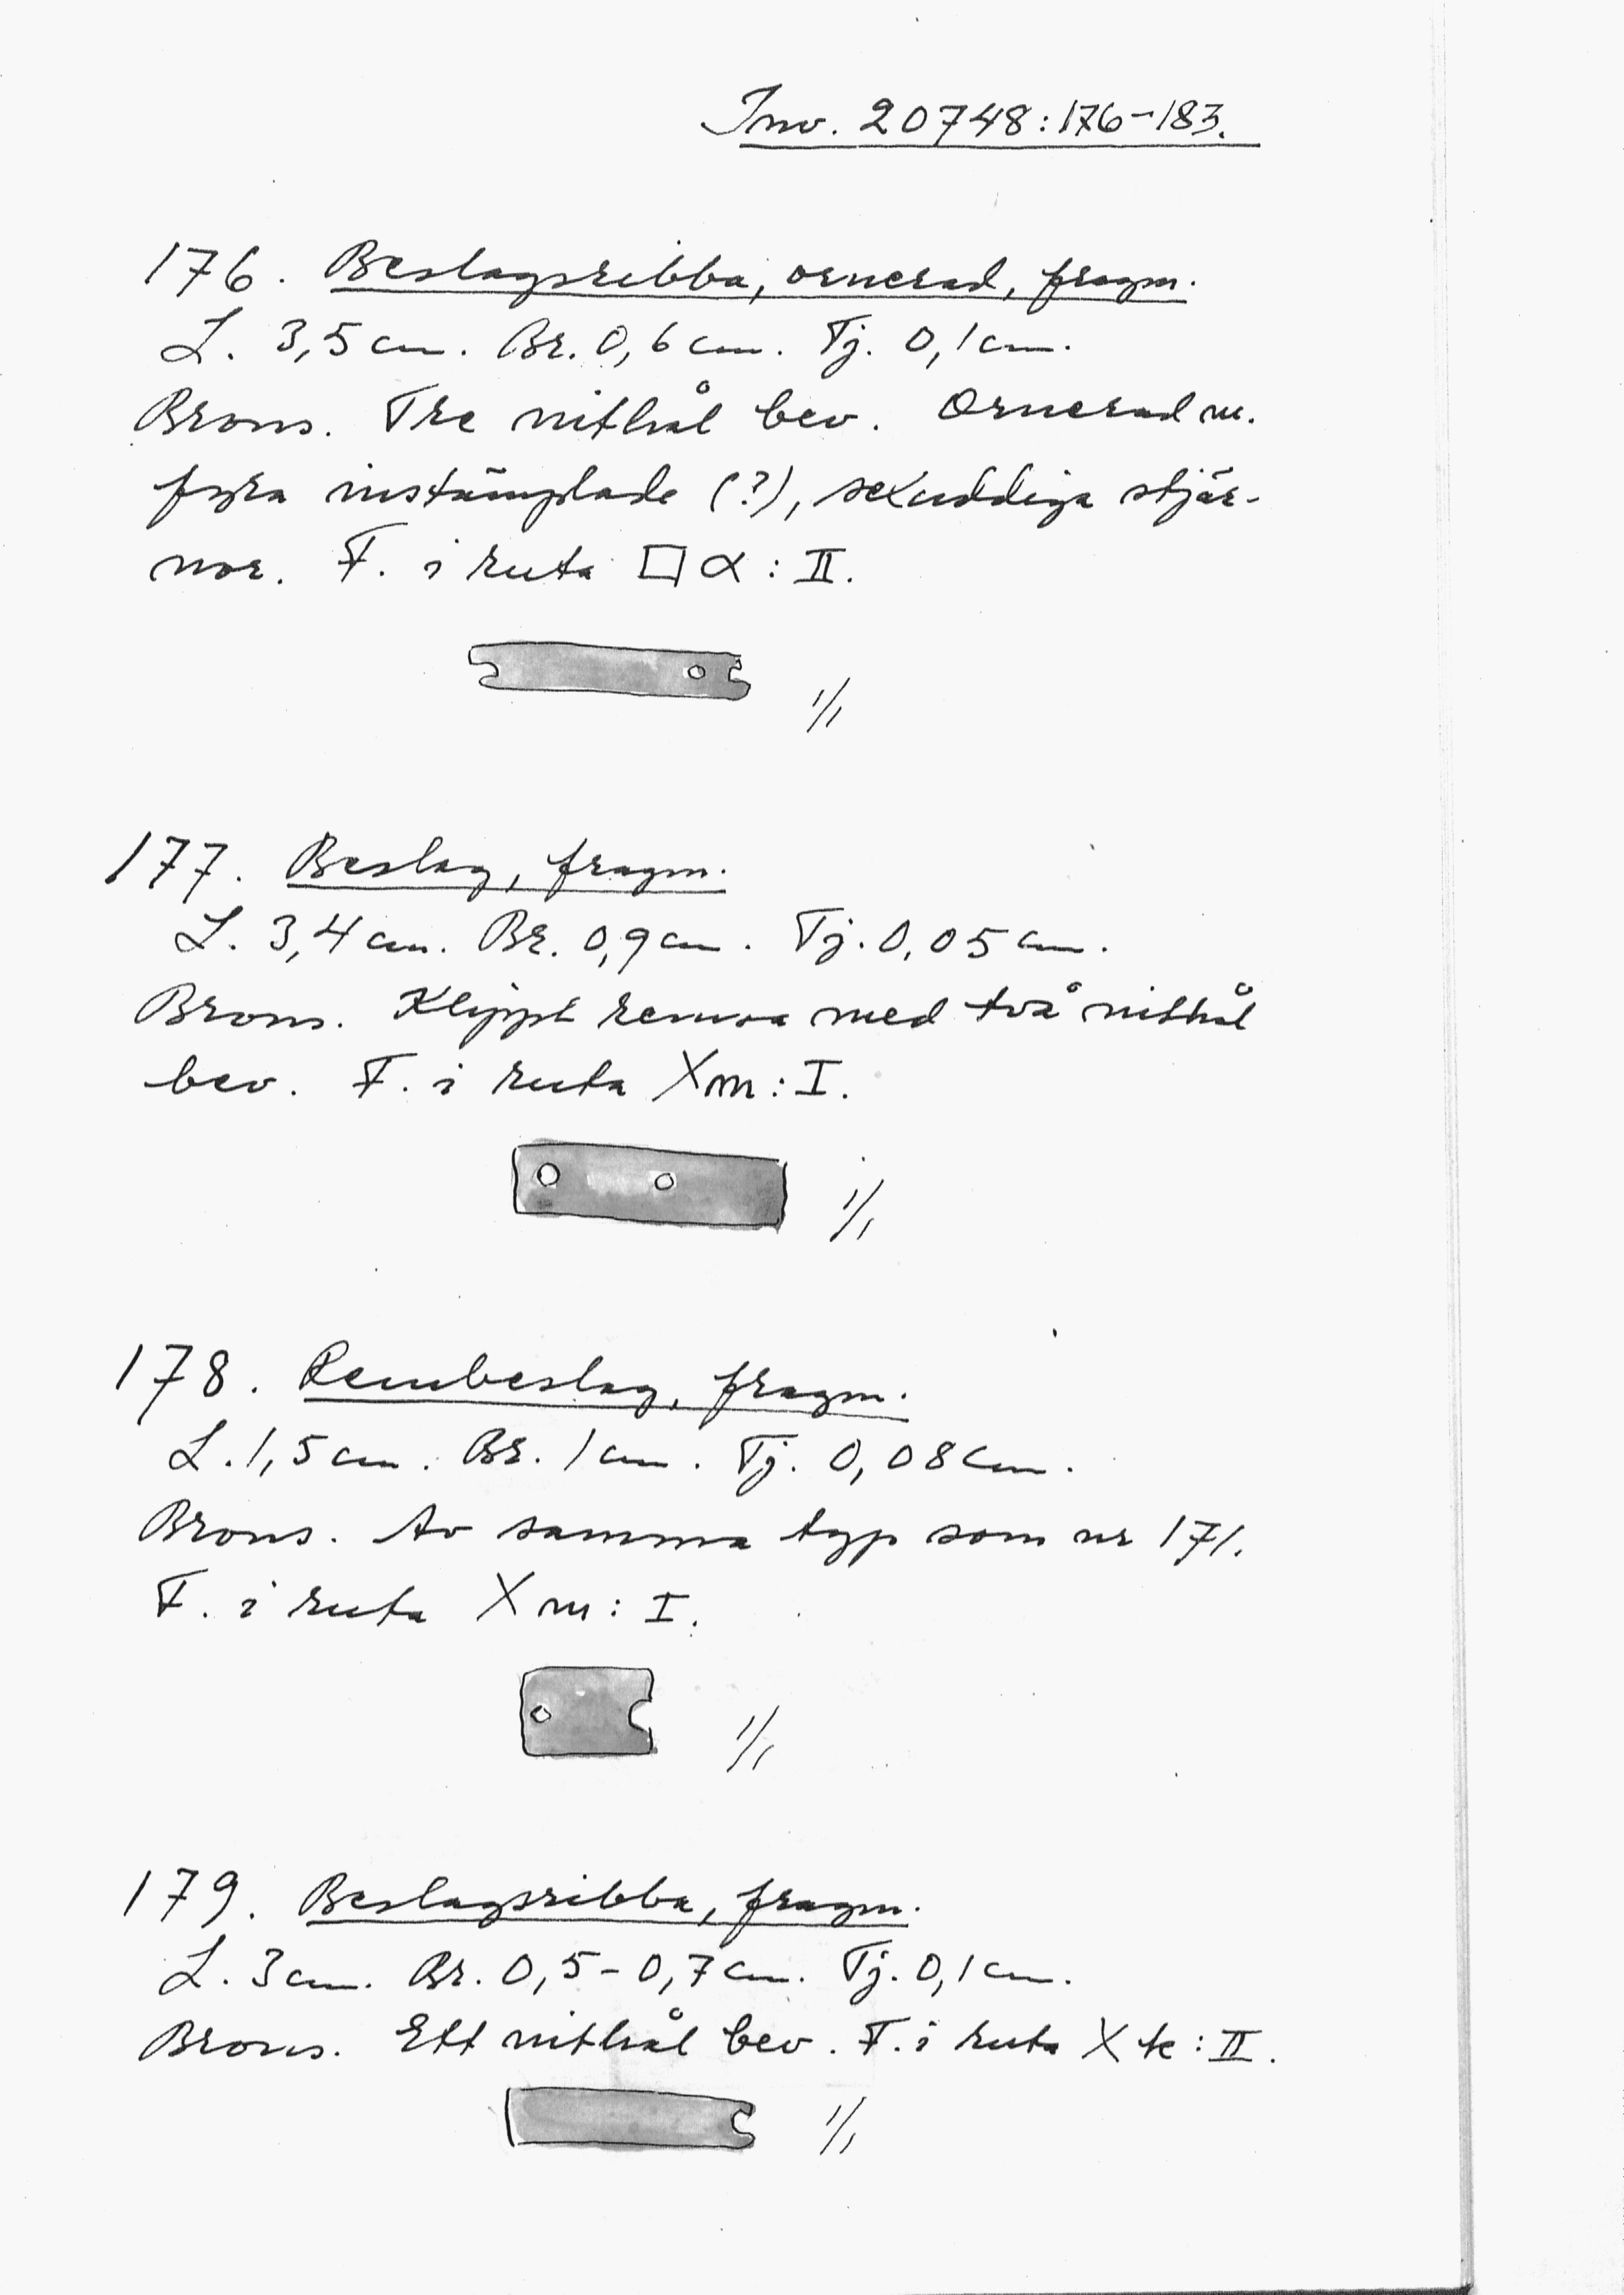 Inv. 20748:176-183.
176. Beslagsribba, ornerad, fragm.
L. 3,5 cm. Br. 0,6 cm. Tj. 0,1 cm.
Brons. Tre nithål bev. Ornerad m.
fyra instämplade (?), sexuddiga stjär-
nor. F. i ruta □ α : II.
1/1
177. Beslag, fragm.
L. 3,4 cm. Br. 0,9 cm. Tj. 0,05 cm.
Brons. Klippt remsa med två nithål
bev. F. i ruta X m : I.
1/1
178. Rembeslag, fragm.
L. 1,5 cm. Br. 1 cm. Tj. 0,08 cm.
Brons. Av samma typ som nr 171.
F. i ruta X m : I.
1/1
179. Beslagsribba, fragm.
L. 3 cm. Br. 0,5-0,7 cm. Tj. 0,1 cm.
Brons. Ett nithål bev. F. i ruta X k : II.
1/1